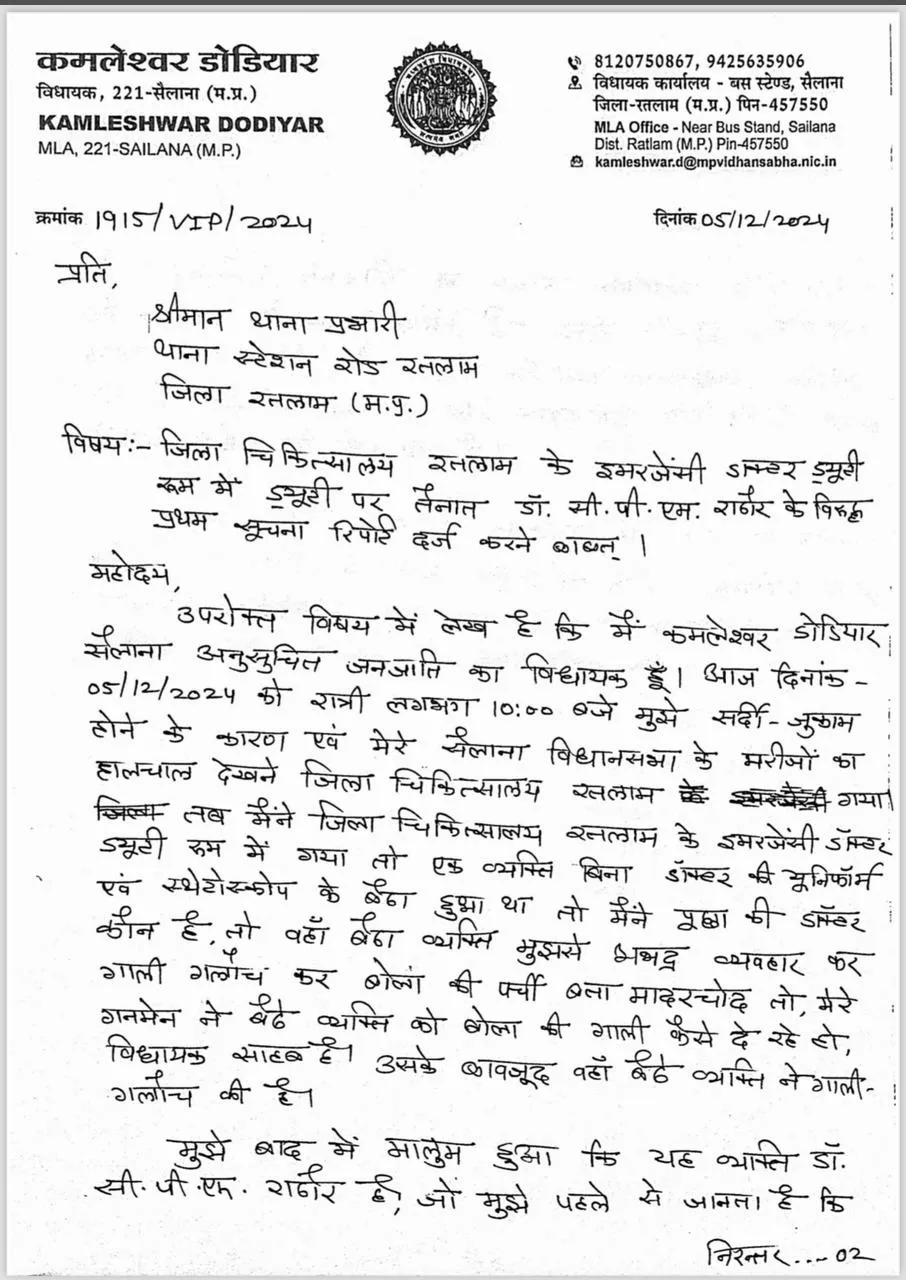 कमलेश्वर डोडियार
विधायक, 221-सैलाना (म.प्र.)
KAMLESHWAR DODIYAR
MLA, 221-SAILANA (M.P.)
8120750867, 9425635906
विधायक कार्यालय - बस स्टेण्ड, सैलाना
जिला-रतलाम (म.प्र.) पिन-457550
MLA Office - Near Bus Stand, Sailana
Dist. Ratlam (M.P.) Pin-457550
kamleshwar.d@mpvidhansabha.nic.in
क्रमांक 1915/VIP/2024
दिनांक 05/12/2024
प्रति,
श्रीमान थाना प्रभारी
थाना स्टेशन रोड रतलाम
जिला रतलाम (म.प्र.)
विषय:- जिला चिकित्सालय रतलाम के इमरजेंसी डाक्टर ड्युटी
रूम में ड्युटी पर तैनात डॉ. सी.पी.एम. राठौर के विरूद्ध
प्रथम सूचना रिपोर्ट दर्ज करने बाबत् ।
महोदय,
उपरोक्त विषय में लेख है कि मैं कमलेश्वर डोडियार
सैलाना अनुसुचित जनजाति का विधायक हूँ। आज दिनांक -
05/12/2024 को रात्री लगभग 10:00 बजे मुझे सर्दी-जुकाम
होने के कारण एवं मेरे सैलाना विधानसभा के मरीजों का
हालचाल देखने जिला चिकित्सालय रतलाम के इमरजेंसी गया।
जिला तब मैंने जिला चिकित्सालय रतलाम के इमरजेंसी डॉक्टर
ड्युटी रूम में गया तो एक व्यक्ति बिना डॉक्टर की युनिफॉर्म
एवं स्थेटोस्कोप के बैठा हुआ था तो मैंने पूछा की डॉक्टर
कौन है, तो वहाँ बैठा व्यक्ति मुझसे अभद्र व्यवहार कर
गाली गलौच कर बोला की पर्ची बता मादरचोद तो, मेरे
गनमेन ने बैठे व्यक्ति को बोला की गाली कैसे दे रहे हो,
विधायक साहब है। उसके बावजूद वहाँ बैठे व्यक्ति ने गाली-
गलौच की है।
मुझे बाद में मालुम हुआ कि यह व्यक्ति डॉ.
सी.पी.एम. राठौर है, जो मुझे पहले से जानता है कि
निरन्तर....02